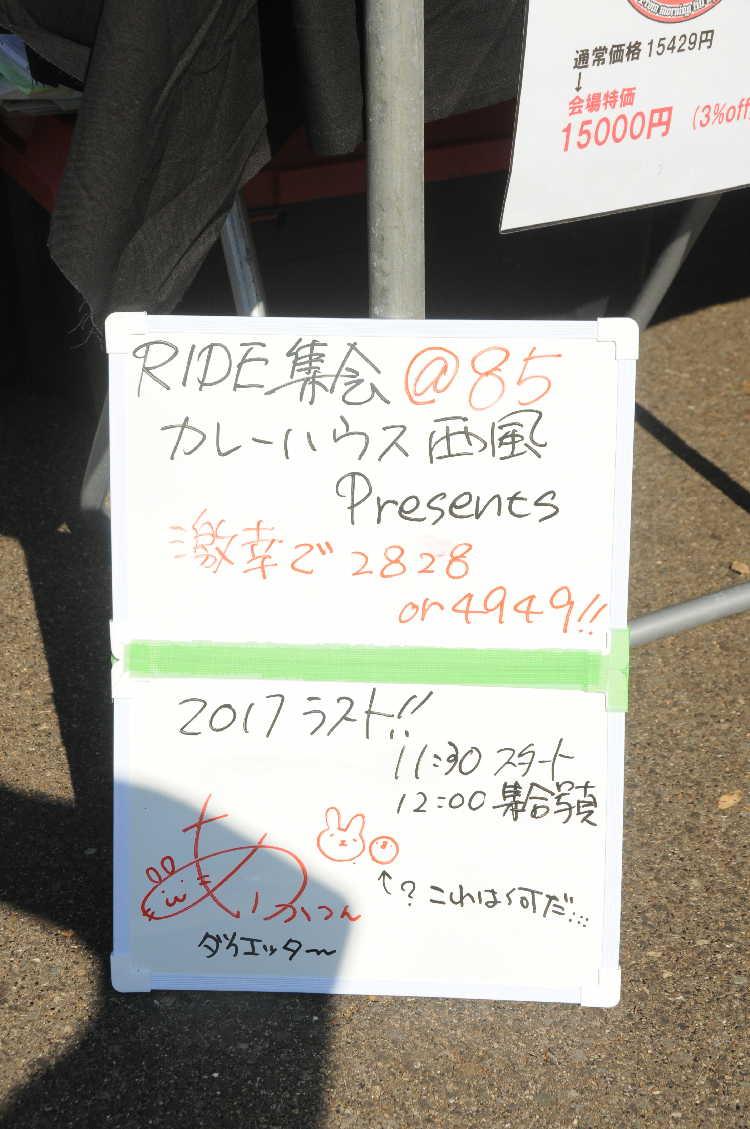 通常価格 15429円
↓
会場特価
15000円 (3%off
RIDE集会@85
カレーハウス西風
Presents
激辛で2828
or4949!!
2017ラスト!!
11:30 スタート
12:00 集合写真
あいかつん
↑? これは何だ…
ダイエッター～